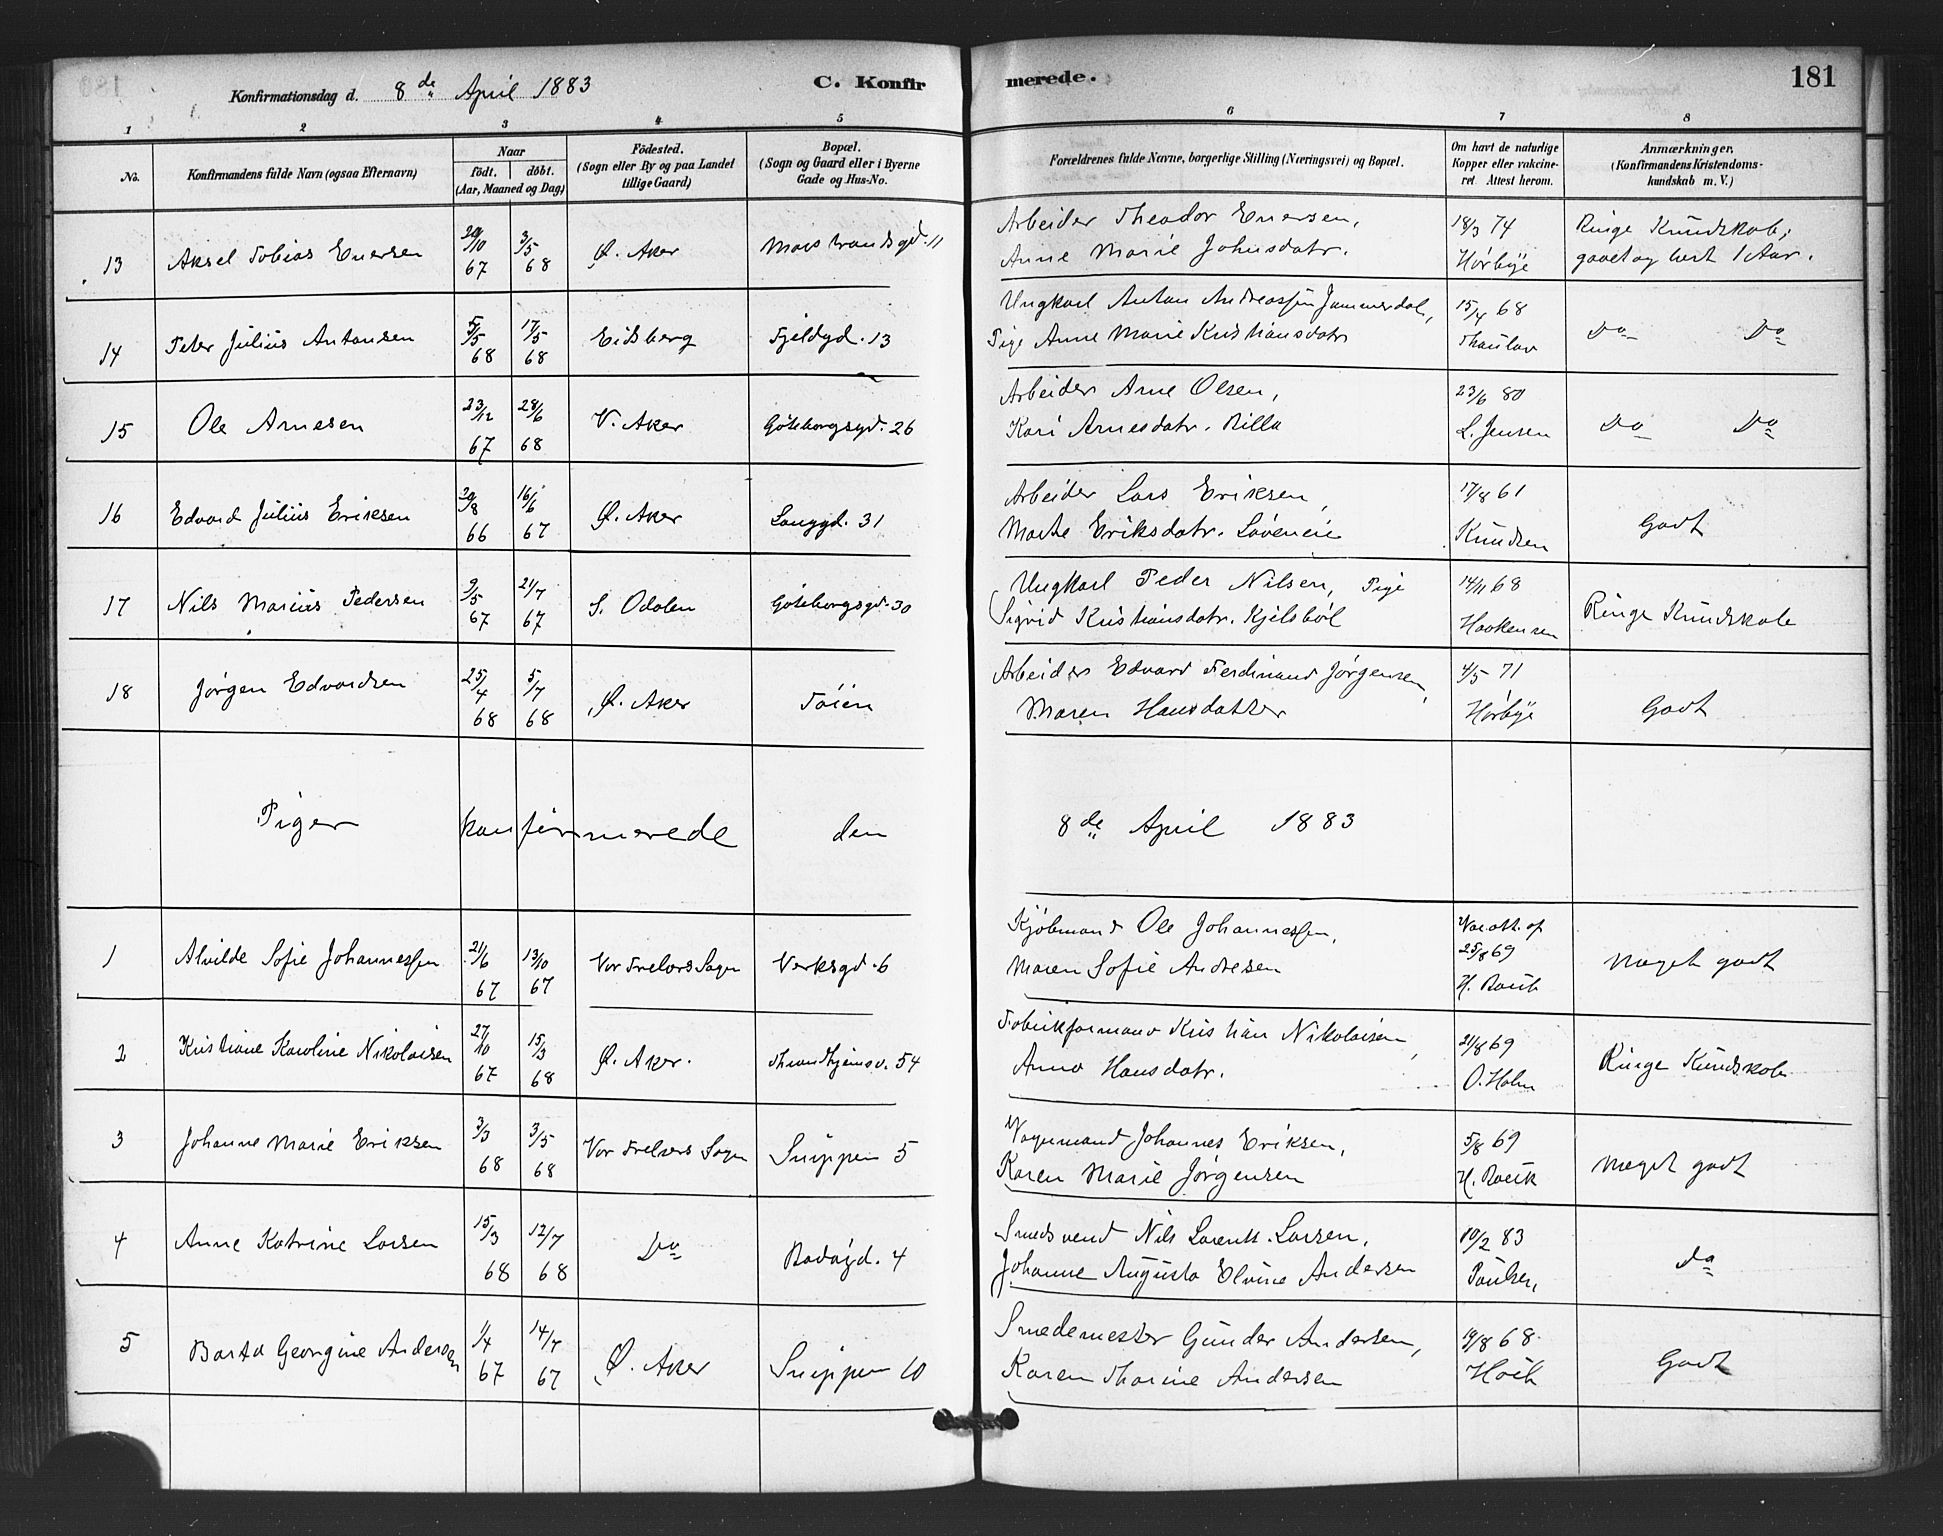 Konfirmationsdag d. 8de April 1883
C. Konfirmerede.
181
1 2 3 4 5 6 7 8
No.
Konfirmandens fulde Navn (ogsaa Efternavn)
Naar
födt. döbt.
(Aar, Maaned og Dag)
Födested.
(Sogn eller By og paa Landet
tillige Gaard)
Bopæl.
(Sogn og Gaard eller i Byerne
Gade og Hus-No.
Forældrenes fulde Navne, borgerlige Stilling (Næringsvei) og Bopæl.
Om havt de naturlige
Kopper eller vakcine-
ret. Attest herom.
Anmærkninger.
(Konfirmandens Kristendoms-
kundskab m. V.)
13 Aksel Tobias Enersen 29/10 67 3/5 68 Ø. Aker 11
Arbeider Theodor Enersen,
Anne Marie Johnsdatr.
18/3 74
Hørbye
Ringe Kundskab;
gaaet og lært 1 Aar.
14 Peter Julius Antonsen 5/5 68 17/5 68 Eidsberg Fjeldgd. 13
Ungkarl Anton Andreassen Jammerdal,
Pige Anne Marie Kristiansdatr
15/4 68
Thaulow
Do Do
15 Ole Arnesen 23/12 67 28/6 68 V. Aker Göteborgsgd. 26
Arbeider Arne Olsen,
Kari Arnesdatr. Rilla
23/6 80
L. Jensen
Do Do
16 Edvard Julius Eriksen 29/8 66 16/6 67 Ø. Aker Langgd. 31
Arbeider Lars Eriksen,
Marte Eriksdatr. Løveneie
17/8 61
Knudsen
Godt
17 Nils Marius Pedersen 9/5 67 21/7 67 S. Odalen Göteborgsgd. 30
Ungkarl Peder Nilsen, Pige
Sigrid Kristiansdatr. Kjelsbøl
14/11 68
Haakensen
Ringe Kundskab
18 Jørgen Edvardsen 25/4 68 5/7 68 Ø. Aker Töien
Arbeider Edvard Ferdinand Jørgensen,
Maren Hansdatter
4/5 71
Hørbye
Godt
Piger konfirmerede den 8de April 1883
1 Alvilde Sofie Johannessen 21/6 67 13/10 67 Vor Frelsers Sogn Verksgd. 6
Kjøbmand Ole Johannessen,
Maren Sofie Andresen
Vac. att. af
25/8 69
H.
Meget godt
2 Kristiane Karoline Nikolaisen 27/10 67 15/3 68 Ø. Aker. Throndhjemsv. 54
Fabrikformand Kristian Nikolaisen,
Anna Hansdatr.
21/8 69
O. Holm
Ringe Kundskab
3 Johanne Marie Eriksen 3/3 68 3/5 68 Vor Frelsers Sogn Snippen 5
Vognmand Johannes Eriksen,
Karen Marie Jørgensen
5/8 69
H.
Meget godt
4 Anne Katrine Larsen 15/3 68 12/7 68 Do Bodøgd. 4
Smedsvend Nils Lorents Larsen,
Johanne Augusta Elvine Andersen
10/2 83
Paulsen,
do
5 Barta Georgine Andersen 1/4 67 14/7 67 Ø. Aker Snippen 10
Smedemester Gunder Andersen,
Karen Thorine Andersen
19/8 68
Godt